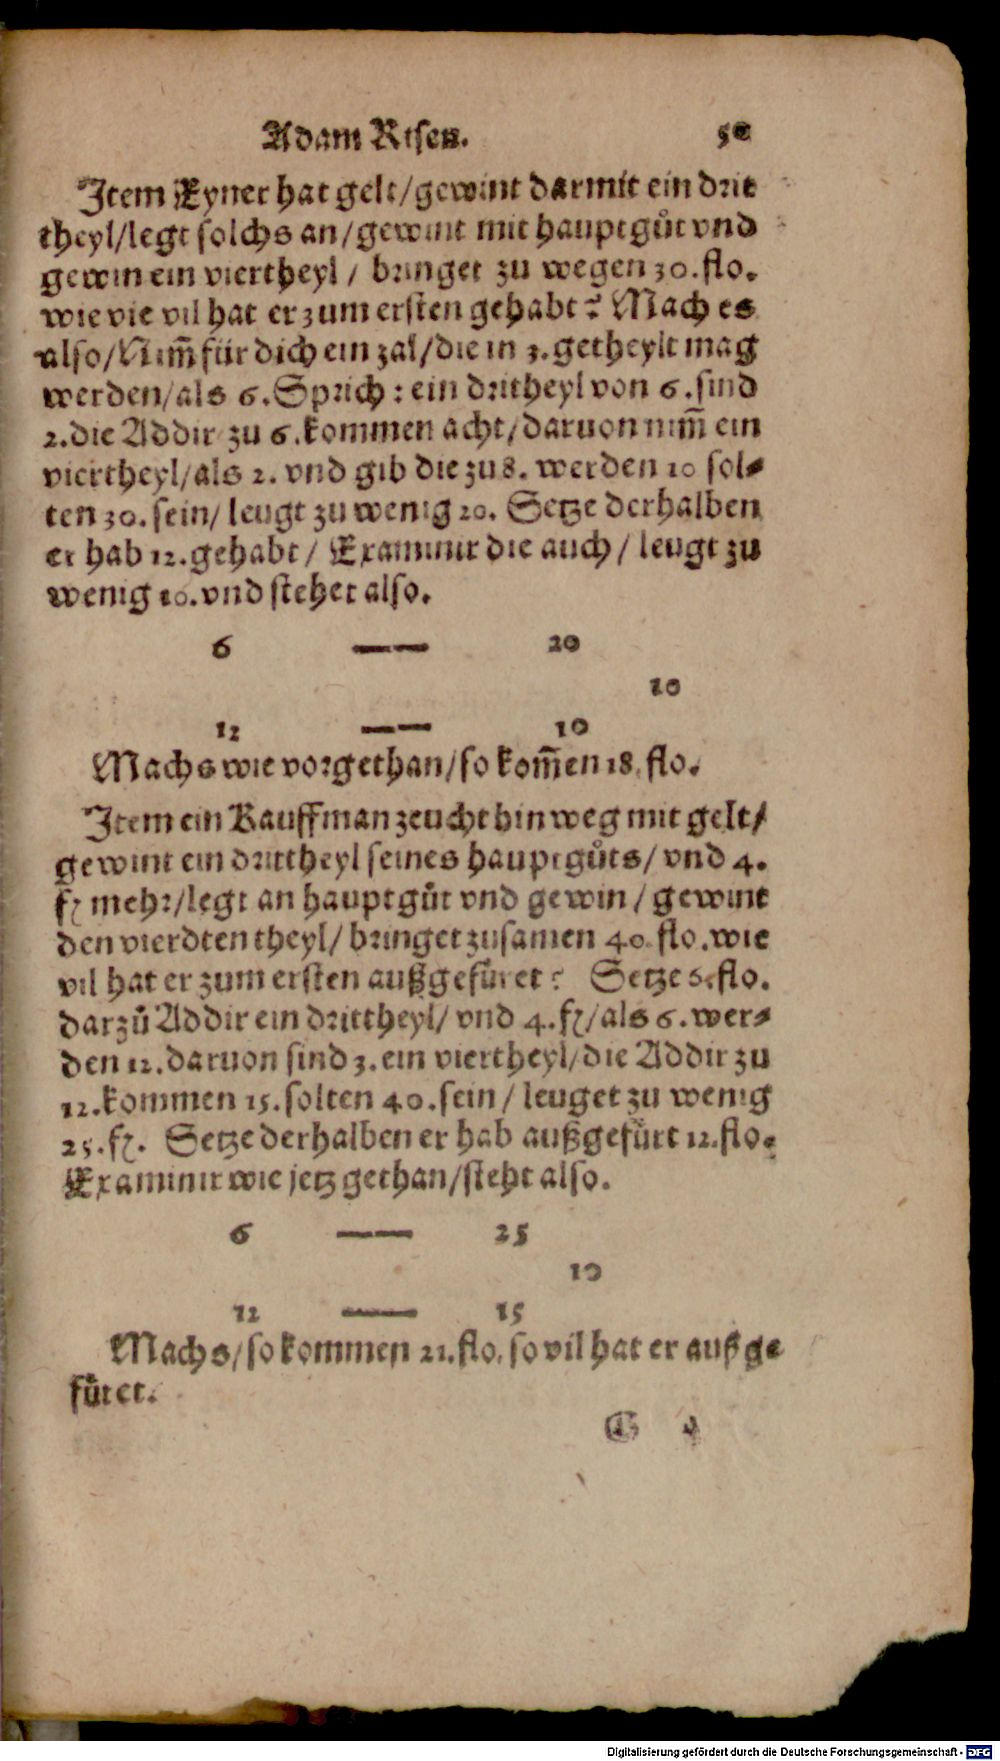 Adam Risen.
Item Eyner hat gelt/gewint darmit ein drit
theyl/legt solchs an/gewint mit hauptgůt vnd
gewin ein viertheyl / bringet zu wegen 30. flo.
wie vie vil hat er zum ersten gehabt? Mach es
also/Nim̃ für dich ein zal/die in 3. getheylt mag
werden/als 6. Sprich: ein dritheyl von 6. sind
2. die Addir zu 6. kommen acht/daruon nim̃ ein
viertheyl/als 2. vnd gib die zu 8. werden 10 sol-
ten 30. sein/ leugt zu wenig 20. Setze derhalben
er hab 12. gehabt / Examinir die auch / leugt zu
wenig 10. vnd stehet also.
6 —— 20
10
12 —— 10
Machs wie vorgethan/so kom̃en 18. flo.
Item ein Kauffman zeucht hinweg mit gelt/
gewint ein drittheyl seines hauptgůts/ vnd 4.
fl mehr/legt an hauptgůt vnd gewin / gewint
den vierdten theyl/ bringet zusamen 40. flo. wie
vil hat er zum ersten außgefüret? Setze 6. flo.
darzů Addir ein drittheyl/ vnd 4. fl/als 6. wer-
den 12. daruon sind 3. ein viertheyl/die Addir zu
12. kommen 15. solten 40. sein / leuget zu wenig
25. fl. Setze derhalben er hab außgefürt 12. flo.
Examinir wie jetz gethan/steht also.
6 —— 25
10
12 —— 15
Machs/so kommen 21. flo. so vil hat er außge
füret.
G
Digitalisierung gefördert durch die Deutsche Forschungsgemeinschaft - DFG